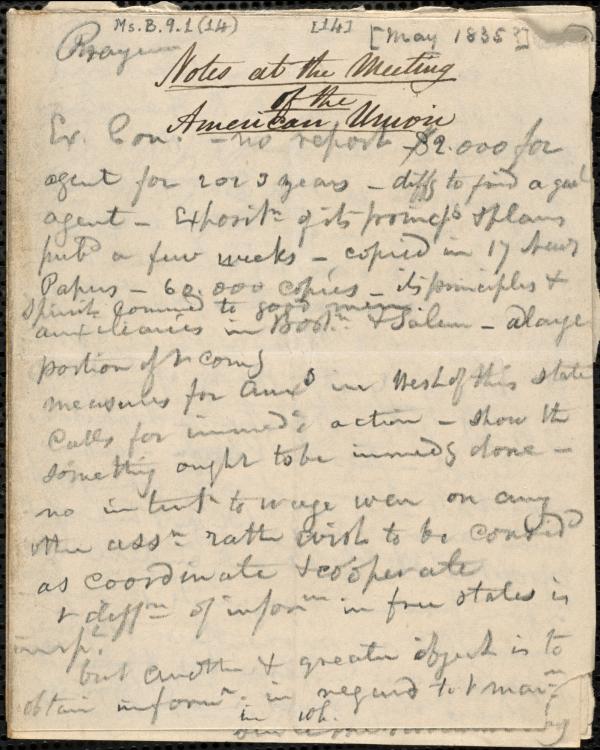 Ms. B. 9. 1 (14) [14] [May 1835?]
Prayer
Notes at the Meeting
of the
American Union
Ex. Com. - no report - $2.000 for
agent for 2 or 3 years - diffy to find a good
agent - Expositn of its princps & plans
pubd a few weeks - copied in 17 News
Papers - 60.000 copies - its principles &
spirit commd to good men.
auxiliaries in Bostn & Salem - a large
portion of
measures for auxs in West of this state
Calls for immedt action - show tht
something ought to be immedy done -
no intentn to wage war on any
other assn rather wish to be considd
as coordinate & cooperate
t diffn of informn in free states is
impt.
but another & greater object is to
obtain informn. in regard to t
in wh.